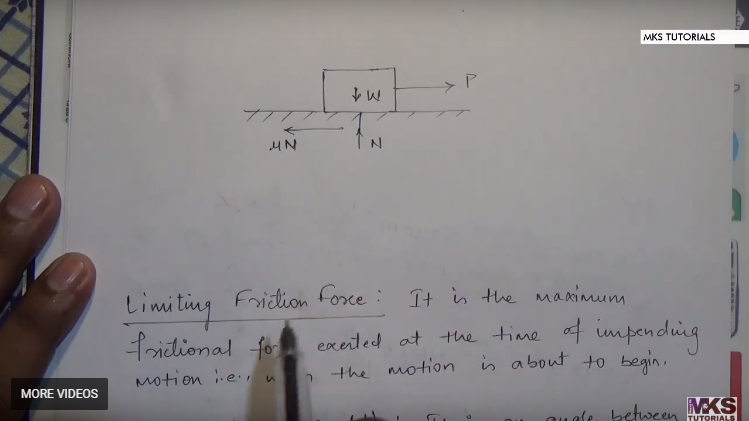 MKS TUTORIALS
P
W
μN
N
Limiting Friction Force: It is the maximum
frictional exerted at the time of impending
motion i.e., the motion is about to begin.
It is an angle between
MORE VIDEOS
MKS
TUTORIALS